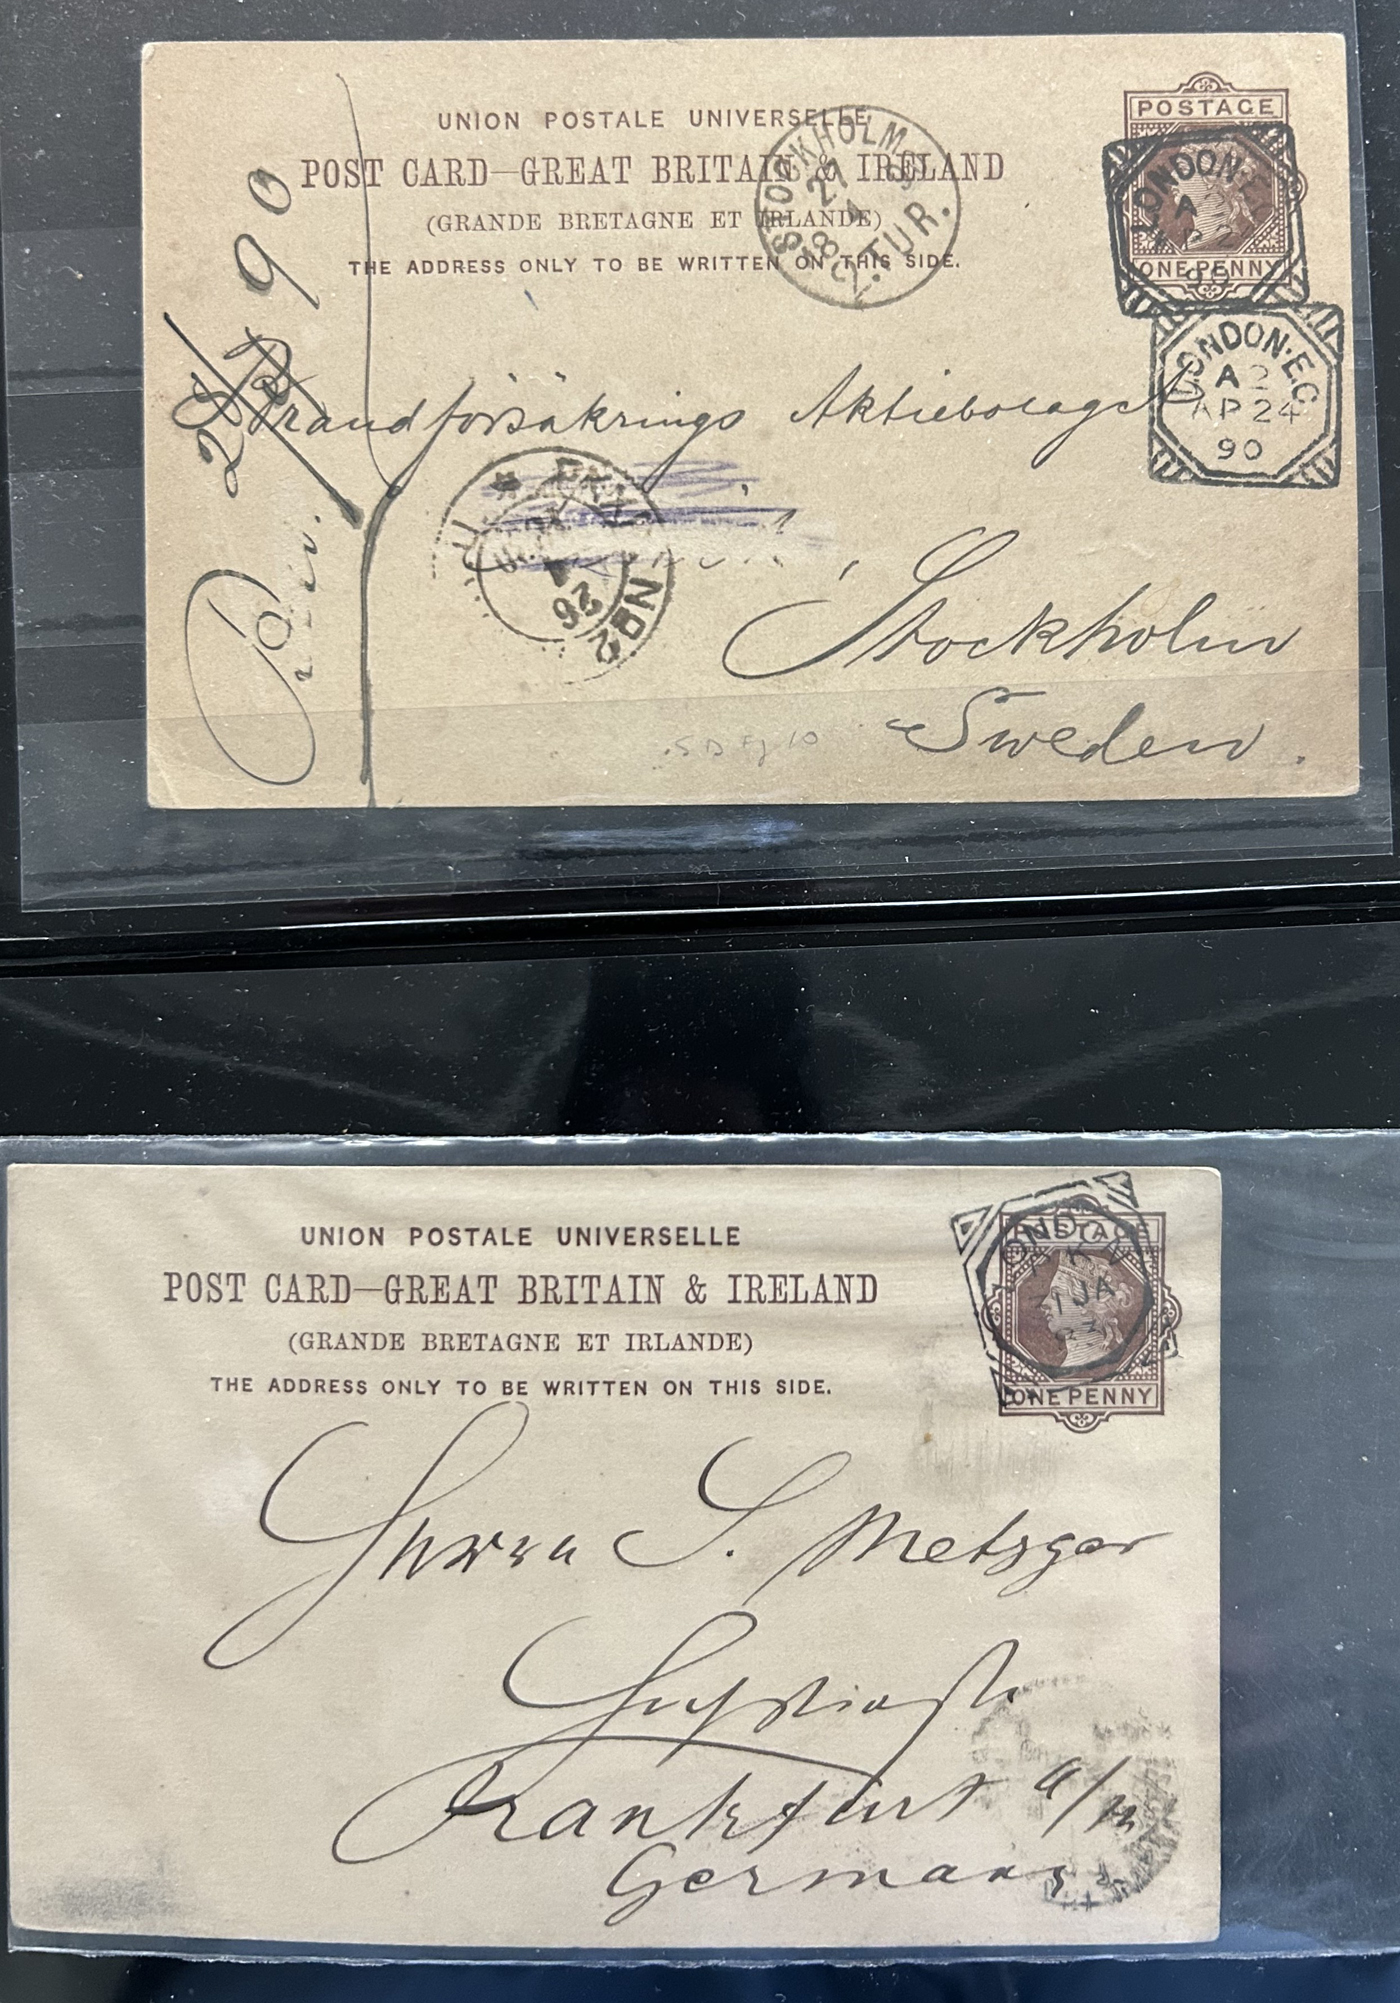 UNION POSTALE UNIVERSELLE
POST CARD—GREAT BRITAIN & IRELAND
(GRANDE BRETAGNE ET IRLANDE)
THE ADDRESS ONLY TO BE WRITTEN ON THIS SIDE.
POSTAGE
ONE PENNY
LONDON·E
A
90
LONDON·E.C
A 2
AP 24
90
STOCKHOLM
27 4
2.TUR.
28/4 90
Brandförsäkrings Aktiebolaget
PKXP No2
26 4
Stockholm
Sweden.
UNION POSTALE UNIVERSELLE
POST CARD—GREAT BRITAIN & IRELAND
(GRANDE BRETAGNE ET IRLANDE)
THE ADDRESS ONLY TO BE WRITTEN ON THIS SIDE.
POSTAGE
ONE PENNY
K
1 JA
Herrn S. Metzger
Frankfurt a/M
Germany